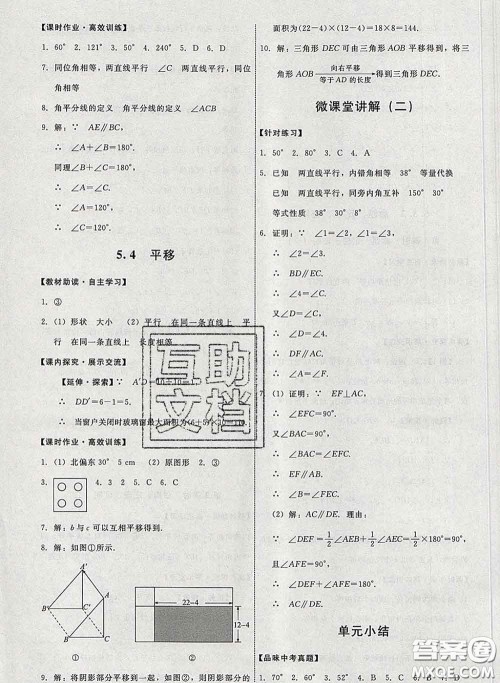 【课时作业·高效训练】
1. 60° 2. 121° 3. 50° 4. 240° 5. D 6. C
7. 同位角相等，两直线平行 ∠C 两直线平行，
同位角相等
8. 角平分线的定义 角平分线的定义 ∠ACB
9. 解：∵ AE∥BC，
∴ ∠A+∠B=180°.
同理∠B+∠C=180°，
∴ ∠A=∠C.
∵ ∠A=120°，
∴ ∠C=120°.
5.4 平移
【教材助读·自主学习】
1. ③
2. (1) 形状 大小 (2) 平行 在同一条直线上 平
行 在同一条直线上 长度相等
【课内探究·展示交流】
【延伸·探索】∵ A'D=
∴ DD'=6-1=5.
∴ 当窗户关闭时玻璃窗最大面积为
【课时作业·高效训练】
1. (1) 北偏东30° 5 cm (2) 原图形 2. ③
3. 4. A 5. C 6. C
7. 解：b与c可以互相平移得到.
8. 解：如图①所示.
A'
A
B'
C'
B
C
22-4
12-4
①
②
9. 解：将阴影部分平移到一起，如图②，阴影部分的
面积为(22-4)×(12-4)=18×8=144.
10. 解：三角形DEC可由三角形AOB平移得到，将三
角形AOB 向右平移 等于AD的长度 得到三角形DEC.
微课堂讲解（二）
【针对练习】
1. 50° 2. 80° 3. C 4. A
5. 已知 两直线平行，内错角相等 38° 等量代换
已知 两直线平行，同旁内角互补 150° 30°
等式性质 38° 30° 8°
6. 证明：∵ ∠1=∠2，∠1=∠3，
∴ ∠2=∠3.
∴ BD∥CE.
∴ ∠4=∠C.
又∵ ∠C=∠D，
∴ ∠4=∠D.
∴ DF∥AC.
∴ ∠A=∠F.
(1) 证明：∵ EF⊥AC，
∴ ∠AFE=∠CFE=90°.
又∵ ∠ABC=90°，
∴ ∠ABC=∠EFC.
∴ EF∥AB.
∴ ∠BAC=∠CEF.
(2) 解：AC∥DE. 理由：
∵ ∠DEF=½∠AEF=½×180°=90°，
且∠AFE=90°，
∴ ∠DEF+∠AFE=180°.
∴ AC∥DE.
单元小结
【品味中考真题】
互助文档